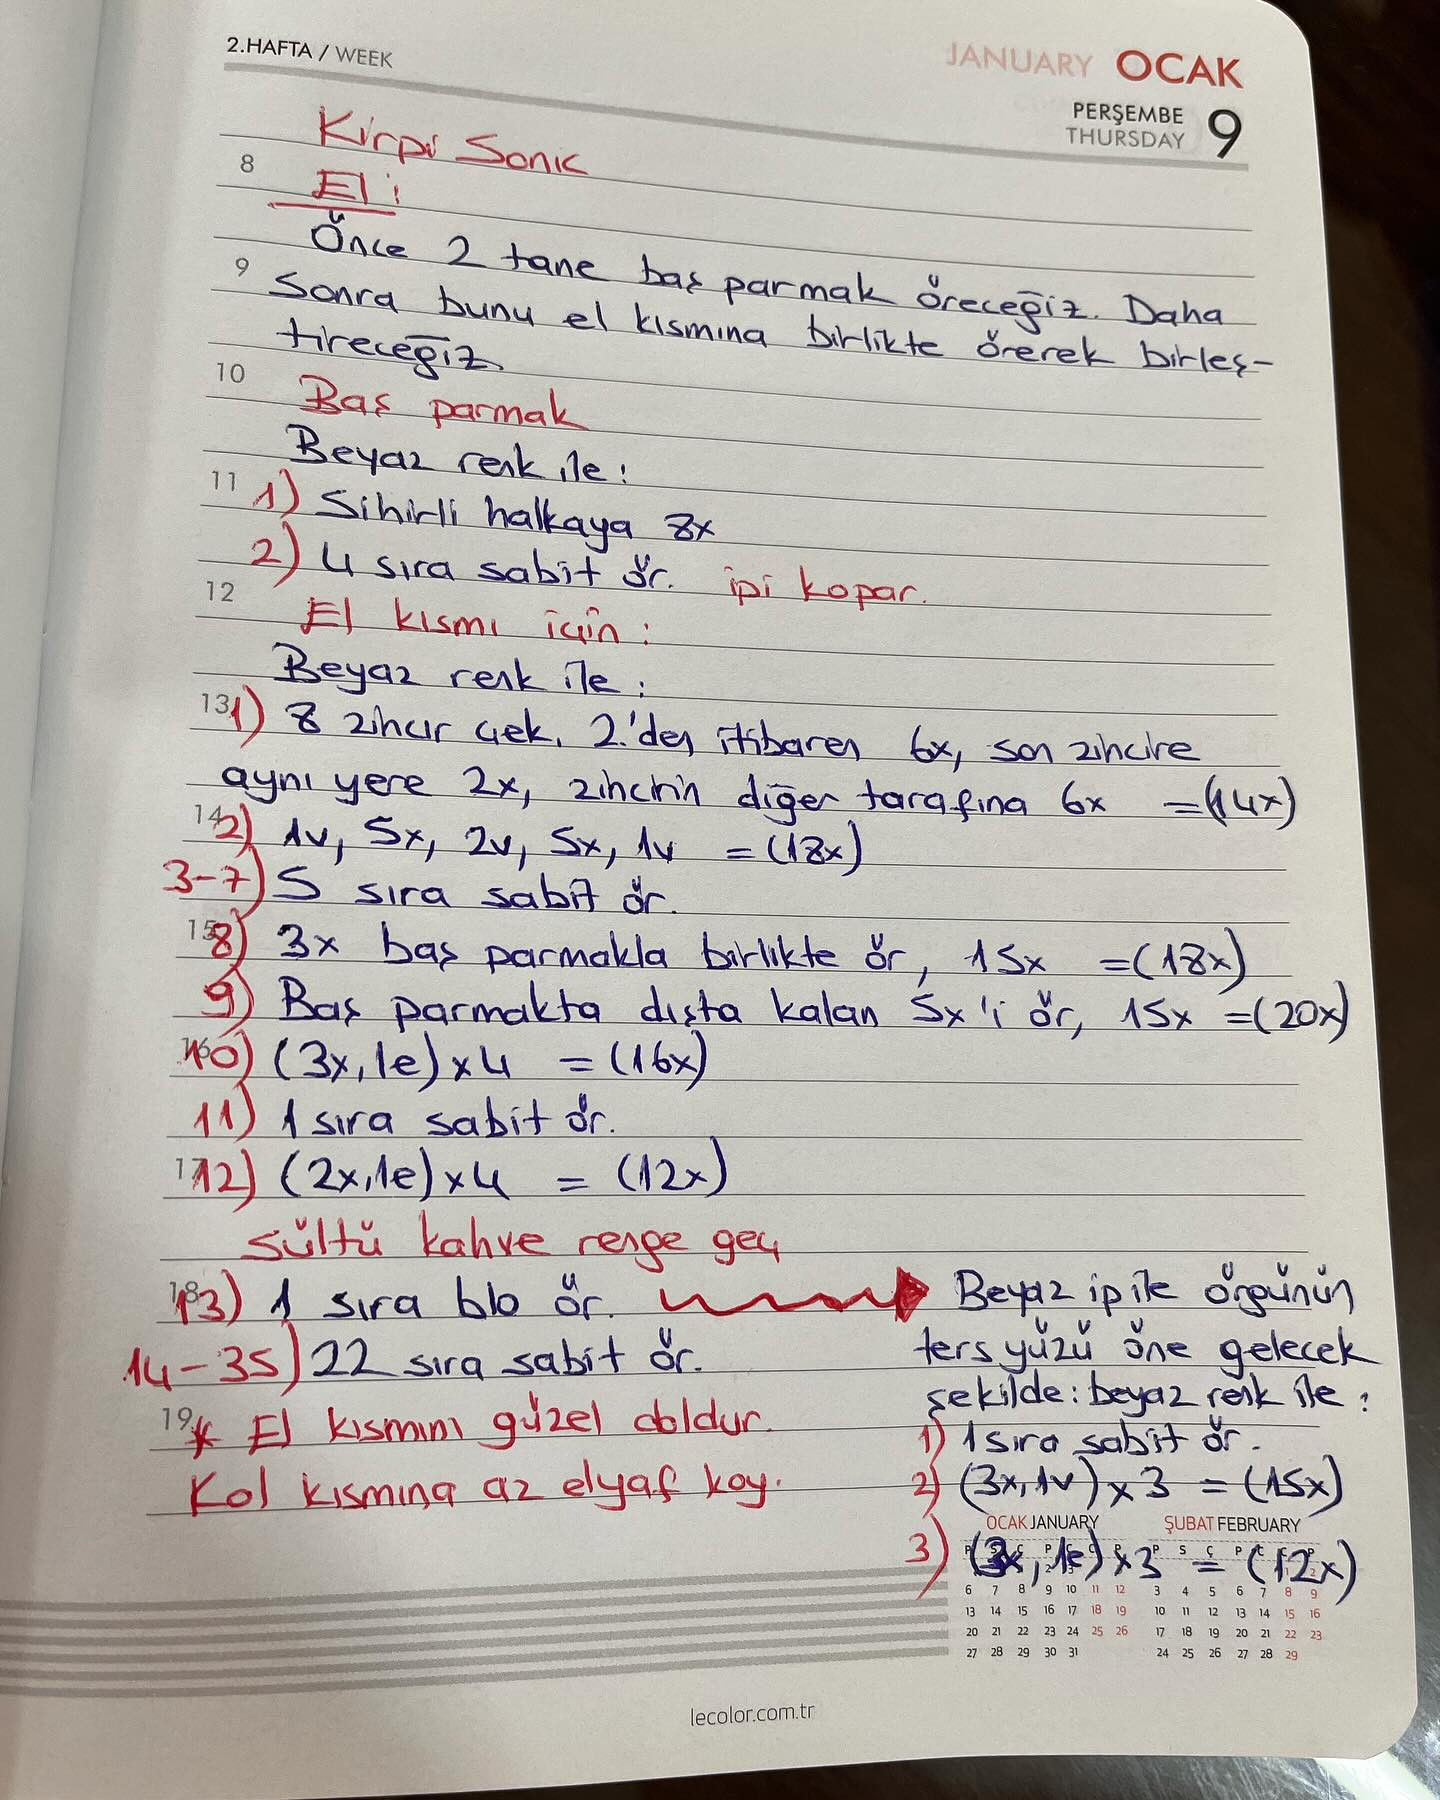 2.HAFTA / WEEK
JANUARY OCAK
PERŞEMBE
THURSDAY
9
Kirpi Sonic
8
El:
Önce 2 tane baş parmak öreceğiz. Daha
9
sonra bunu el kısmına birlikte örerek birleş-
tireceğiz.
10
Baş parmak
Beyaz renk ile:
11
1) Sihirli halkaya 8x
2) 4 sıra sabit ör. ipi kopar.
12
El kısmı için:
Beyaz renk ile:
13
1) 8 zincir çek. 2.'den itibaren 6x, son zincire
aynı yere 2x, zincirin diğer tarafına 6x =(14x)
14
2) 1v, 5x, 2v, 5x, 1v =(18x)
3-7) 5 sıra sabit ör.
15
8) 3x baş parmakla birlikte ör, 15x =(18x)
9) Baş parmakta dışta kalan 5x'i ör, 15x =(20x)
16
10) (3x, 1e)x4 =(16x)
11) 1 sıra sabit ör.
17
12) (2x,1e)x4 = (12x)
sültü kahve renge geç
18
13) 1 sıra blo ör. Beyaz ip ile örgünün
ters yüzü öne gelecek
şekilde: beyaz renk ile:
14-35) 22 sıra sabit ör.
19
* El kısmını güzel doldur.
Kol kısmına az elyaf koy.
1) 1 sıra sabit ör.
2) (3x, 1v)x3 = (15x)
OCAK JANUARY ŞUBAT FEBRUARY
3) (3x, 1e)x3 = (12x)
6 7 8 9 10 11 12 3 4 5 6 7 8 9
13 14 15 16 17 18 19 10 11 12 13 14 15 16
20 21 22 23 24 25 26 17 18 19 20 21 22 23
27 28 29 30 31 24 25 26 27 28 29
lecolor.com.tr